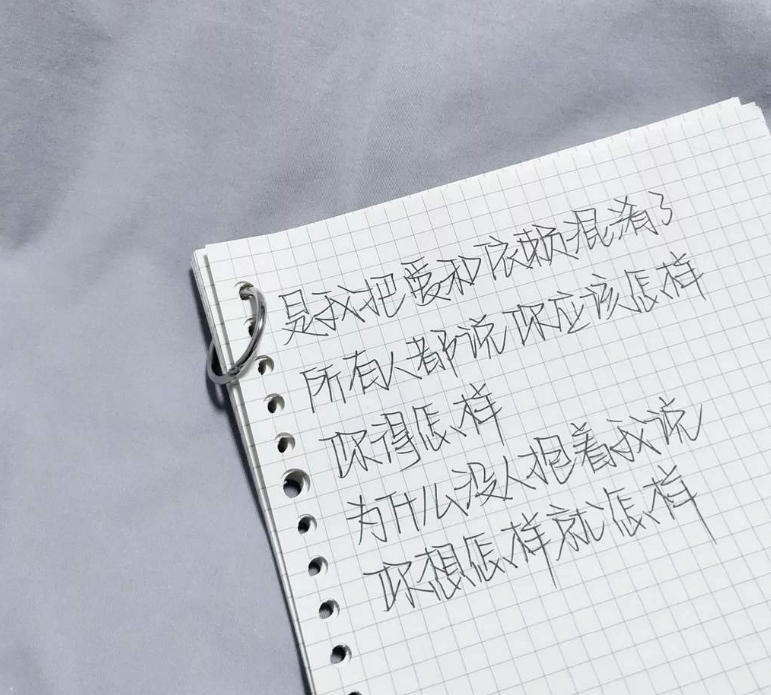 是我把爱和依赖混淆了
所有人都说你应该怎样
你得怎样
为什么没人抱着我说
你想怎样就怎样